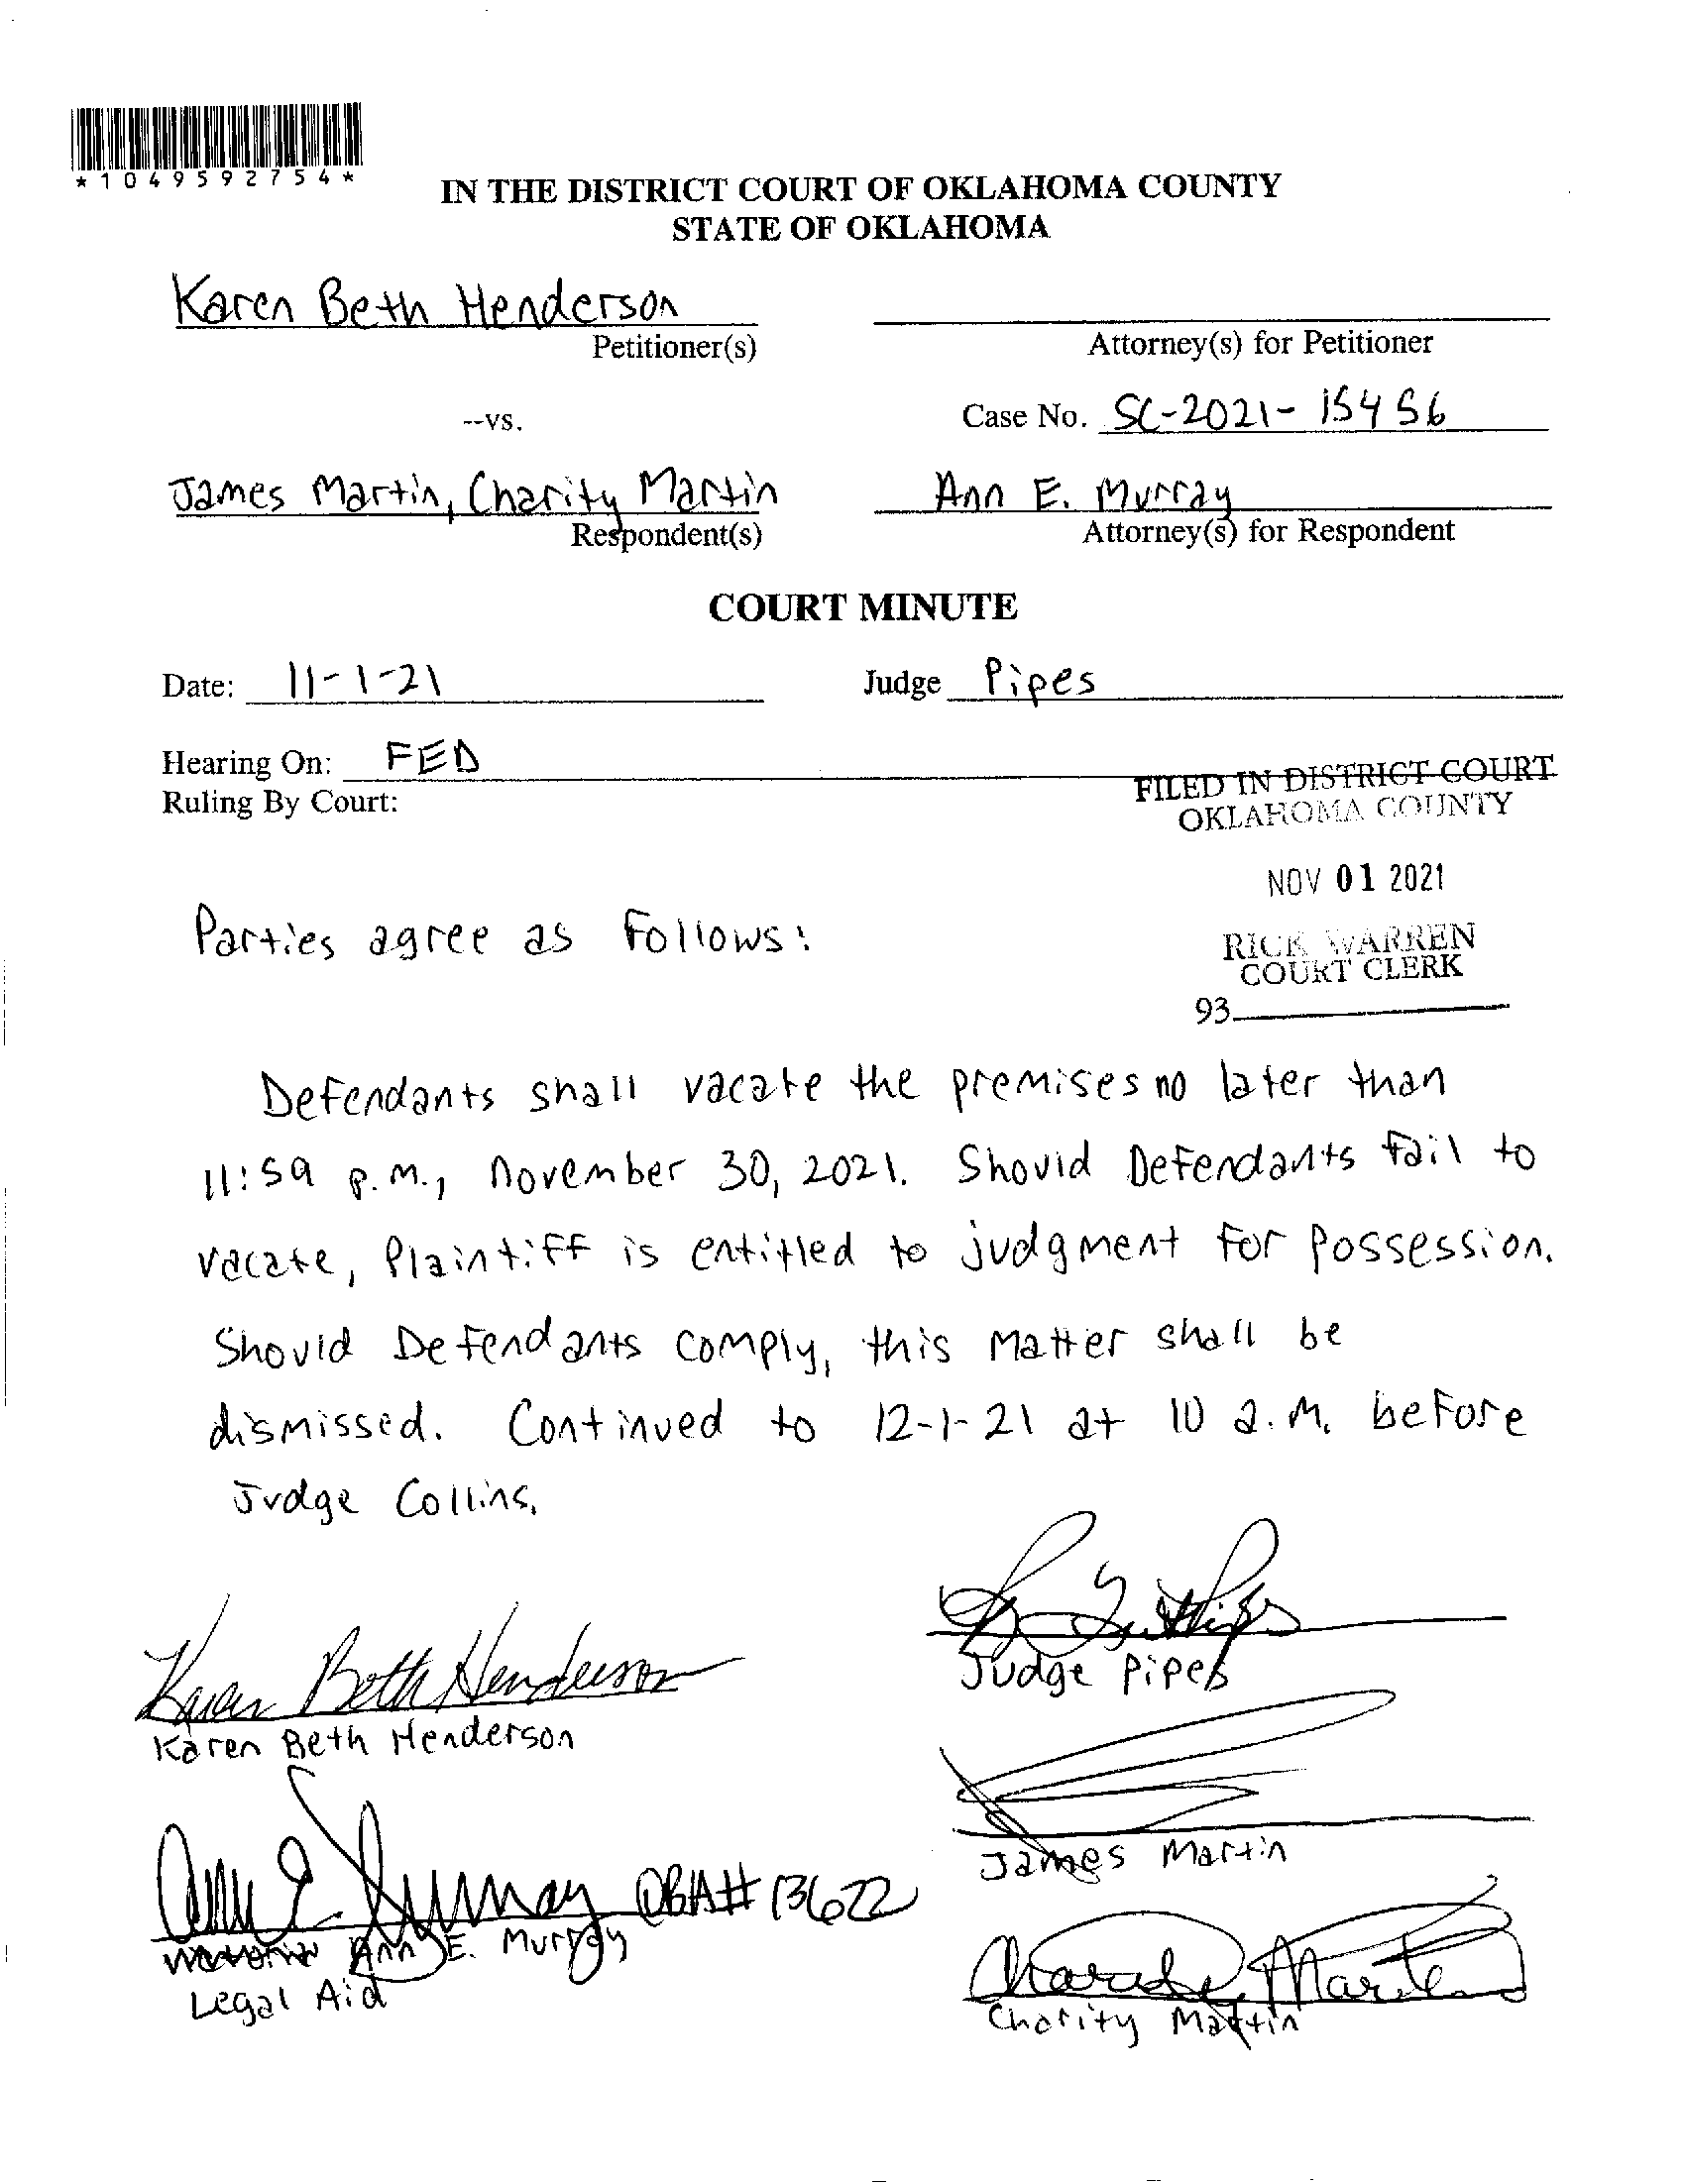 *1049592754*
IN THE DISTRICT COURT OF OKLAHOMA COUNTY
STATE OF OKLAHOMA
Karen Beth Henderson
Petitioner(s)
Attorney(s) for Petitioner
--vs.
Case No. SC-2021-15456
James Martin, Charity Martin
Respondent(s)
Ann E. Murray
Attorney(s) for Respondent
COURT MINUTE
Date: 11-1-21
Judge Pipes
Hearing On: FED
Ruling By Court:
FILED IN DISTRICT COURT
OKLAHOMA COUNTY
NOV 01 2021
RICK WARREN
COURT CLERK
93
Parties agree as follows:
Defendants shall vacate the premises no later than
11:59 p.m., november 30, 2021. Should Defendants fail to
vacate, Plaintiff is entitled to judgment for possession.
Should Defendants comply, this matter shall be
dismissed. Continued to 12-1-21 at 10 a.m. before
Judge Collins.
Judge Pipes
Karen Beth Henderson
Karen Beth Henderson
James Martin
Ann E. Murray OBA# 13622
Ann E. Murray
Legal Aid
Charity Martin
Charity Martin